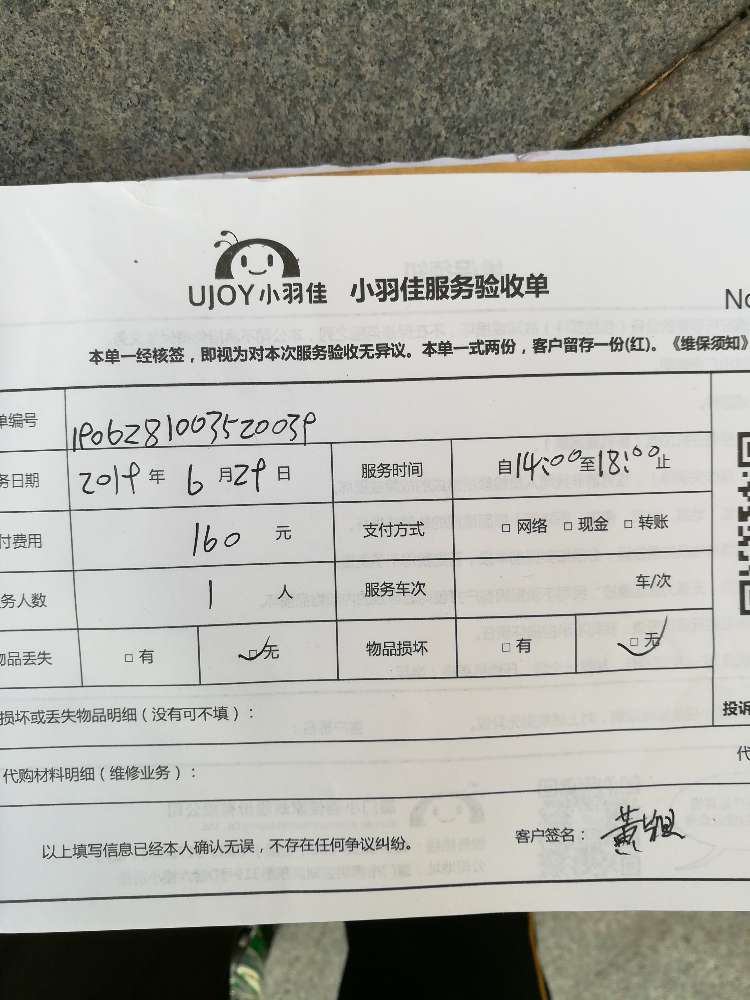 UJOY小羽佳 小羽佳服务验收单
No
本单一经核签，即视为对本次服务验收无异议。本单一式两份，客户留存一份(红)。《维保须知》
单编号 1906281003520039
务日期 2019 年 6 月 29 日 服务时间 自14:00至18:00止
付费用 160 元 支付方式 □ 网络 □ 现金 □ 转账
务人数 1 人 服务车次 车/次
物品丢失 □ 有 □ 无 物品损坏 □ 有 □ 无
损坏或丢失物品明细（没有可不填）：
投诉
代购材料明细（维修业务）：
代
以上填写信息已经本人确认无误，不存在任何争议纠纷。 客户签名： 黄